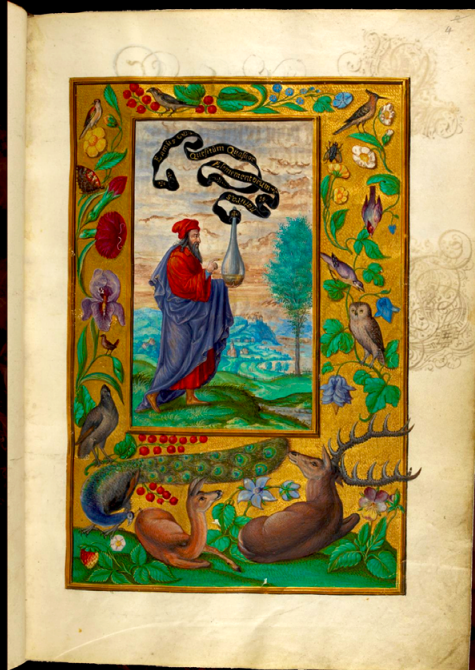 Eamus
Quesitum Quatuor
Elementorum
Naturas
4